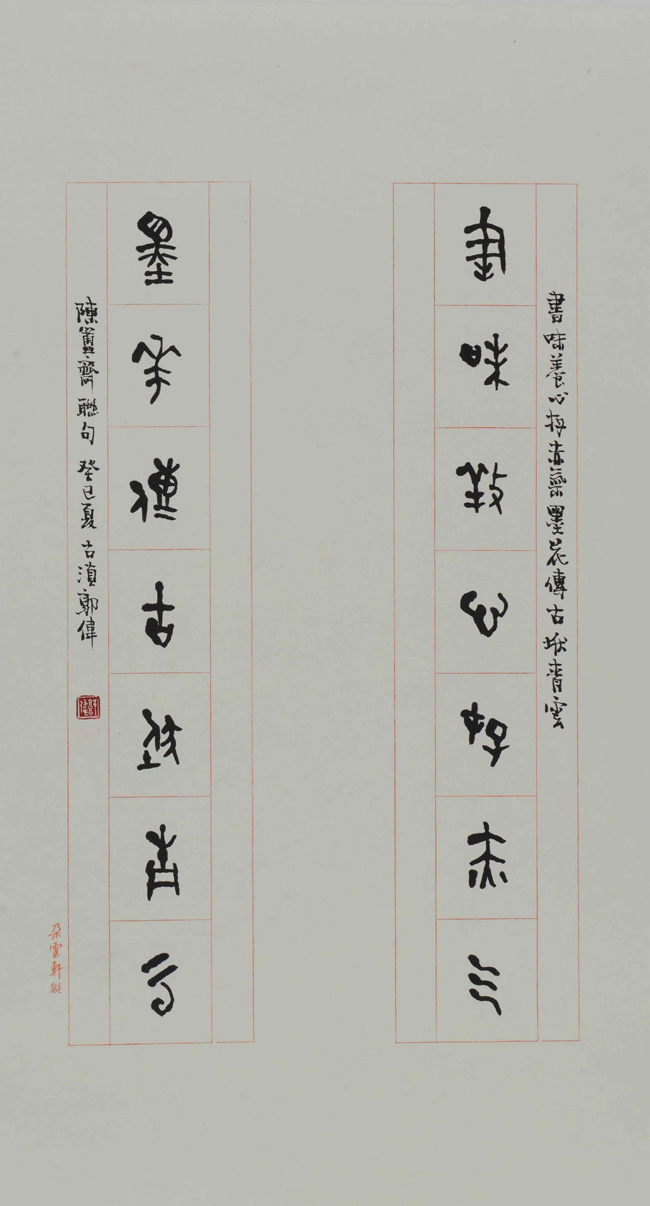 書味養心存赤墨花傳古青雲
書味養心存赤气
墨花傳古青云
陳簠齋聯句 癸巳夏 古滇郭偉
朵雲軒製